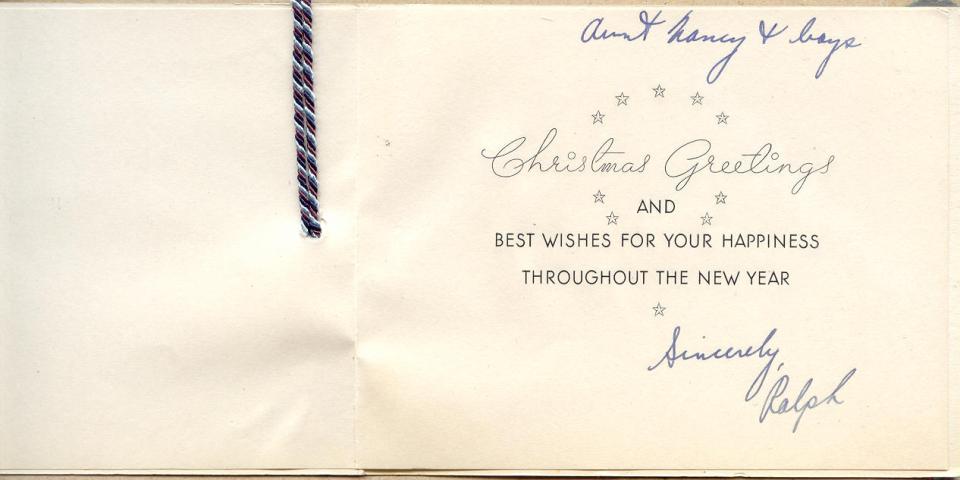 Aunt Nancy & boys
Christmas Greetings
AND
BEST WISHES FOR YOUR HAPPINESS
THROUGHOUT THE NEW YEAR
Sincerely,
Ralph